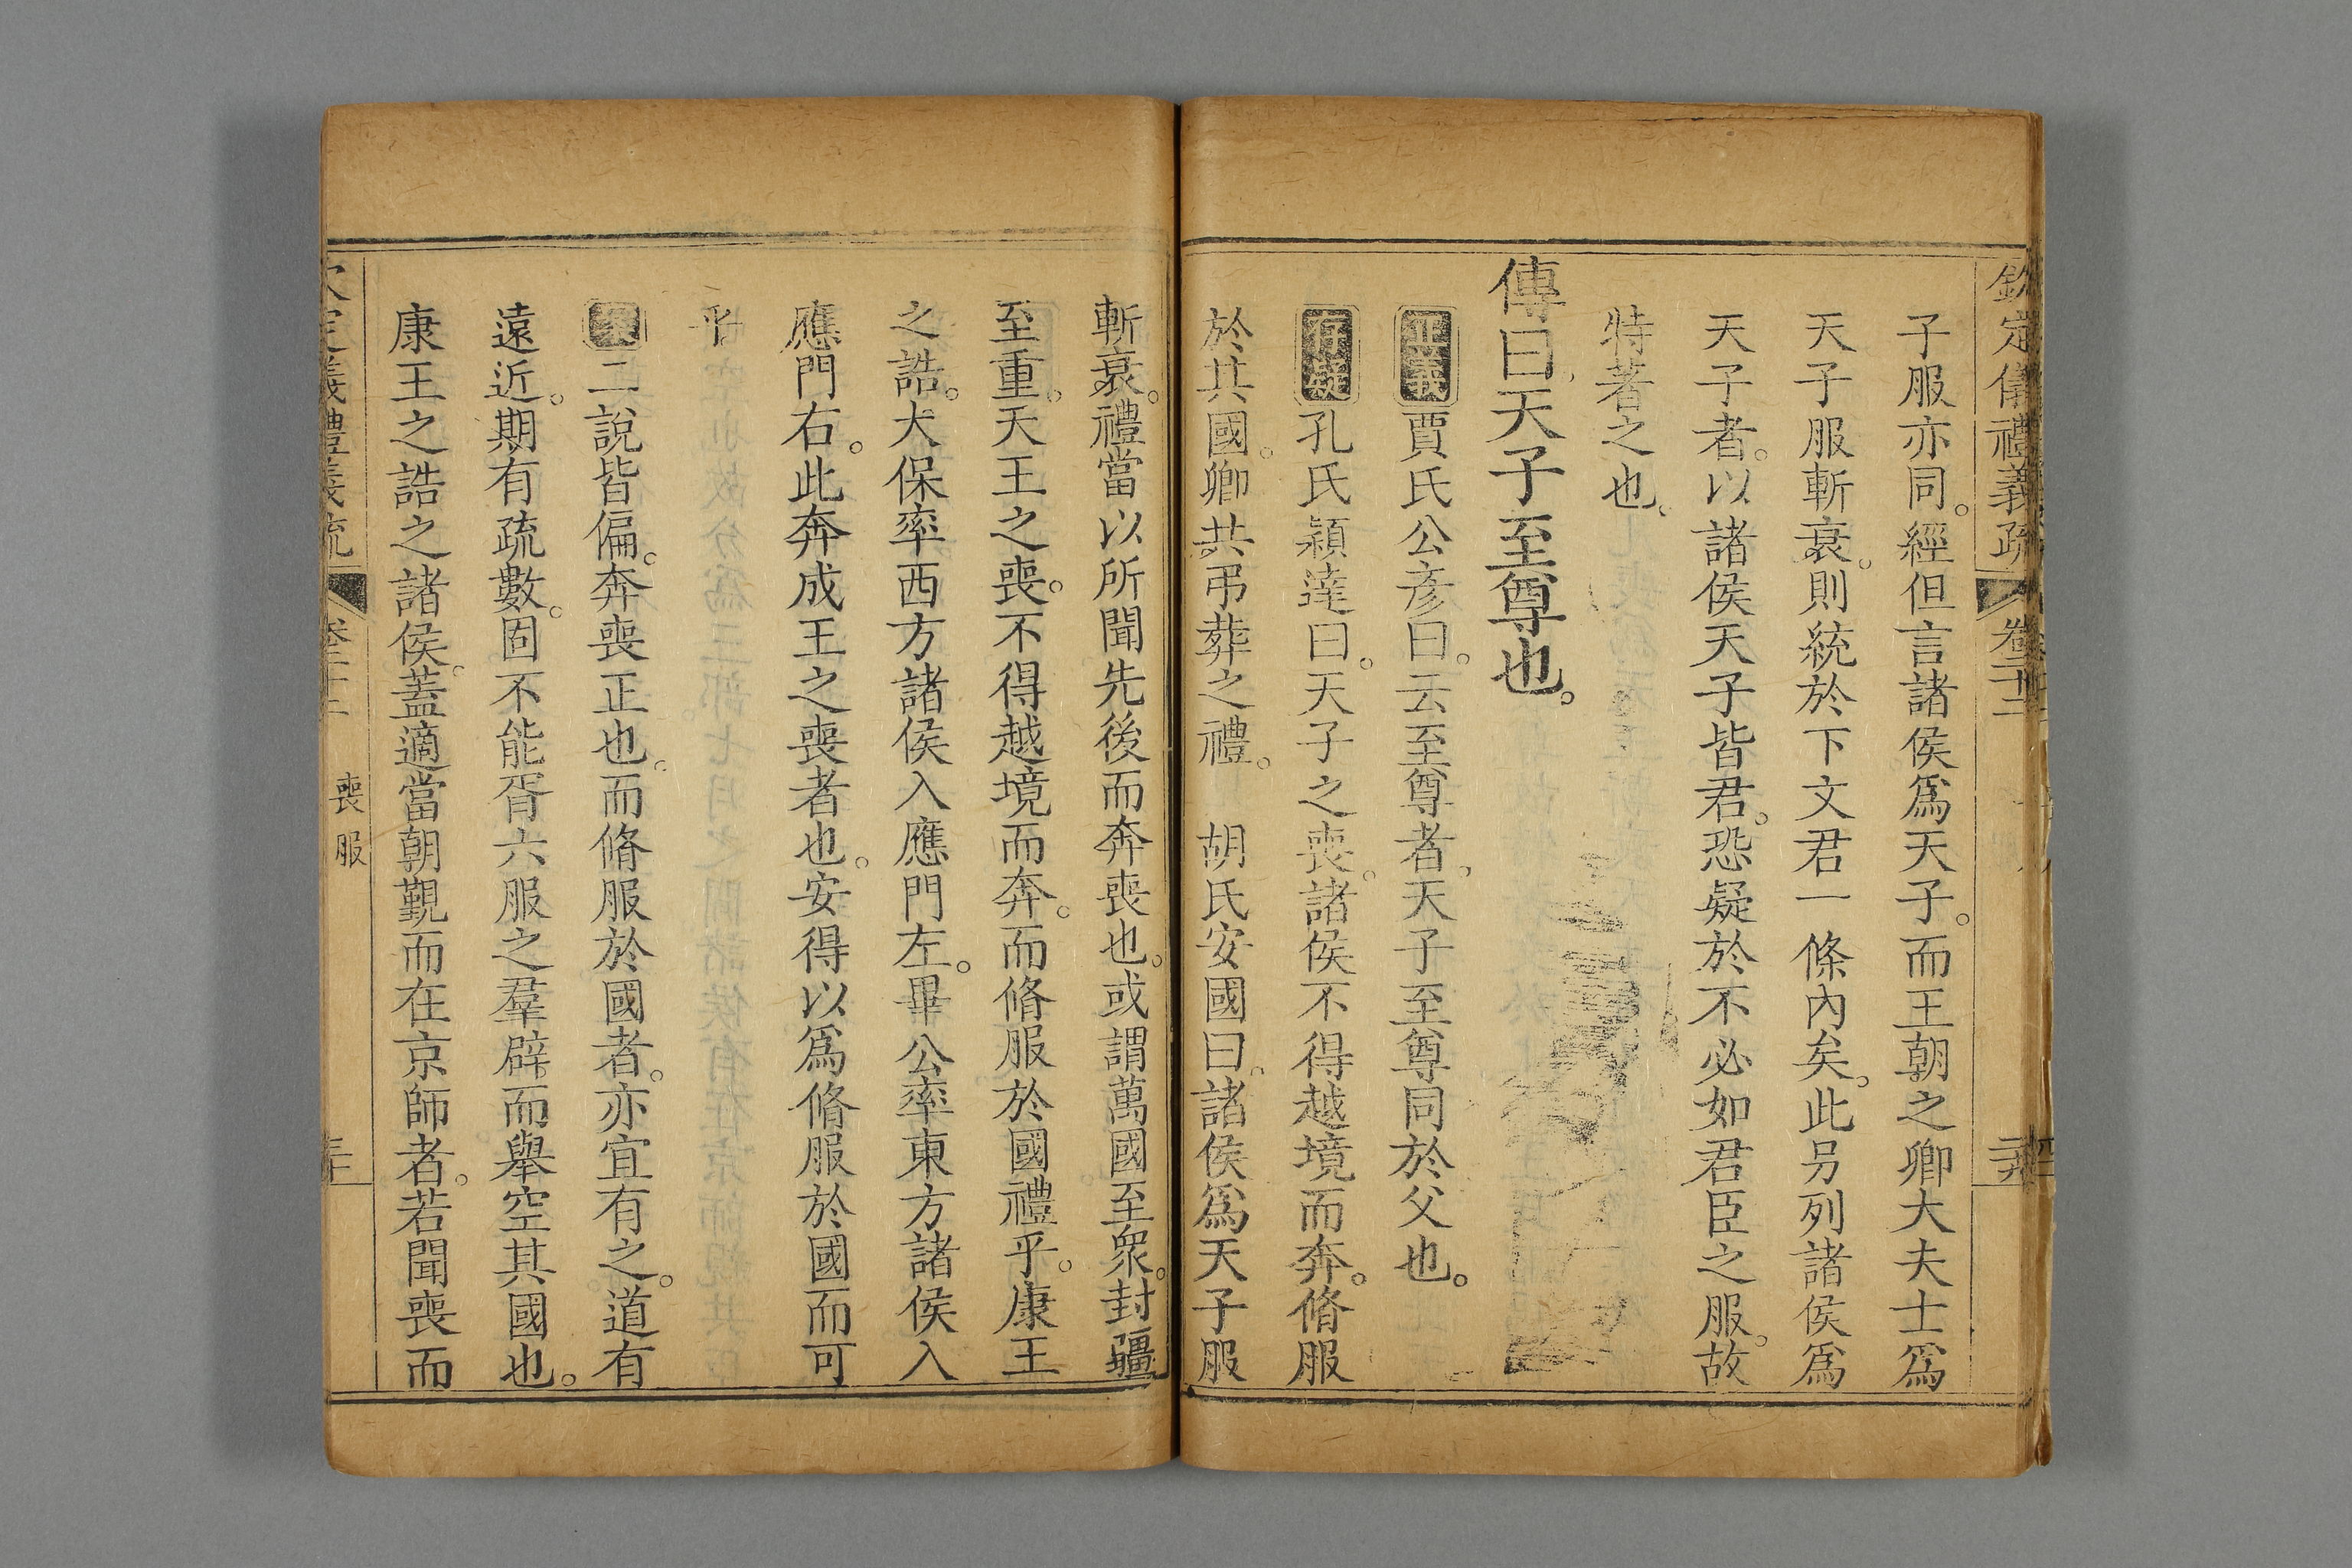 欽定儀禮義疏 卷二十二
子服亦同。經但言諸侯爲天子。而王朝之卿大夫士爲
天子服斬衰。則統於下文君一條內矣。此另列諸侯爲
天子者。以諸侯天子皆君。恐疑於不必如君臣之服。故
特著之也。
傳曰、天子至尊也。
正義賈氏公彥曰。云至尊者、天子至尊同於父也。
存疑孔氏穎達曰。天子之喪。諸侯不得越境而奔。脩服
於其國。卿共弔葬之禮。 胡氏安國曰。諸侯爲天子服
斬衰。禮當以所聞先後而奔喪也。或謂萬國至眾。封疆
至重。天王之喪。不得越境而奔。而脩服於國禮乎。康王
之誥。大保率西方諸侯入應門左。畢公率東方諸侯入
應門右。此奔成王之喪者也。安得以爲脩服於國而可
乎。
案二說皆偏。奔喪正也。而脩服於國者。亦宜有之。道有
遠近。期有疏數。固不能胥六服之羣辟。而舉空其國也。
康王之誥之諸侯。蓋適當朝覲而在京師者。若聞喪而
欽定儀禮義疏 卷二十二 喪服 三十